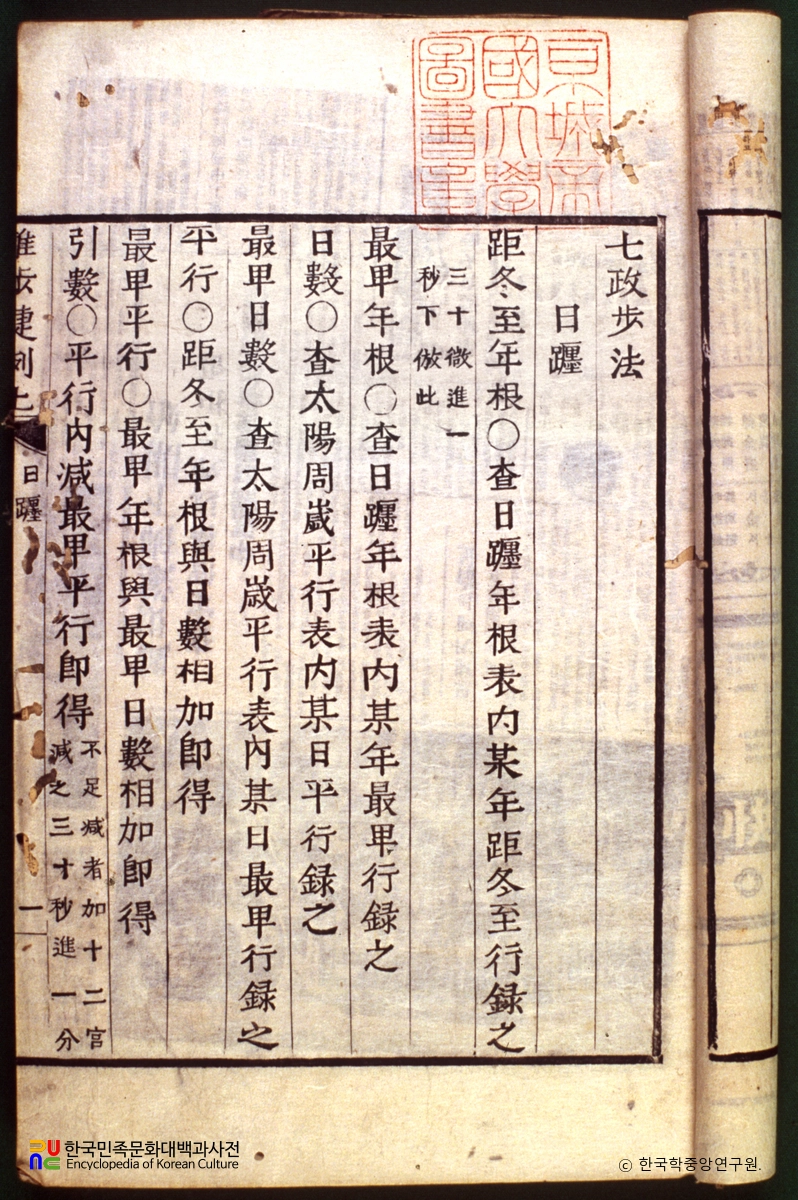 京城帝
國大學
圖書章
七政步法
日躔
距冬至年根〇查日躔年根表内某年距冬至行録之
三十微進一
秒下倣此
最卑年根〇查日躔年根表内某年最卑行録之
日數〇查太陽周歲平行表内某日平行録之
最卑日數〇查太陽周歲平行表内某日最卑行録之
平行〇距冬至年根與日數相加即得
最卑平行〇最卑年根與最卑日數相加即得
引數〇平行内減最卑平行即得
不足減者加十二宮
減之三十秒進一分
推步捷例上
日躔
一
한국민족문화대백과사전
Encyclopedia of Korean Culture
© 한국학중앙연구원.